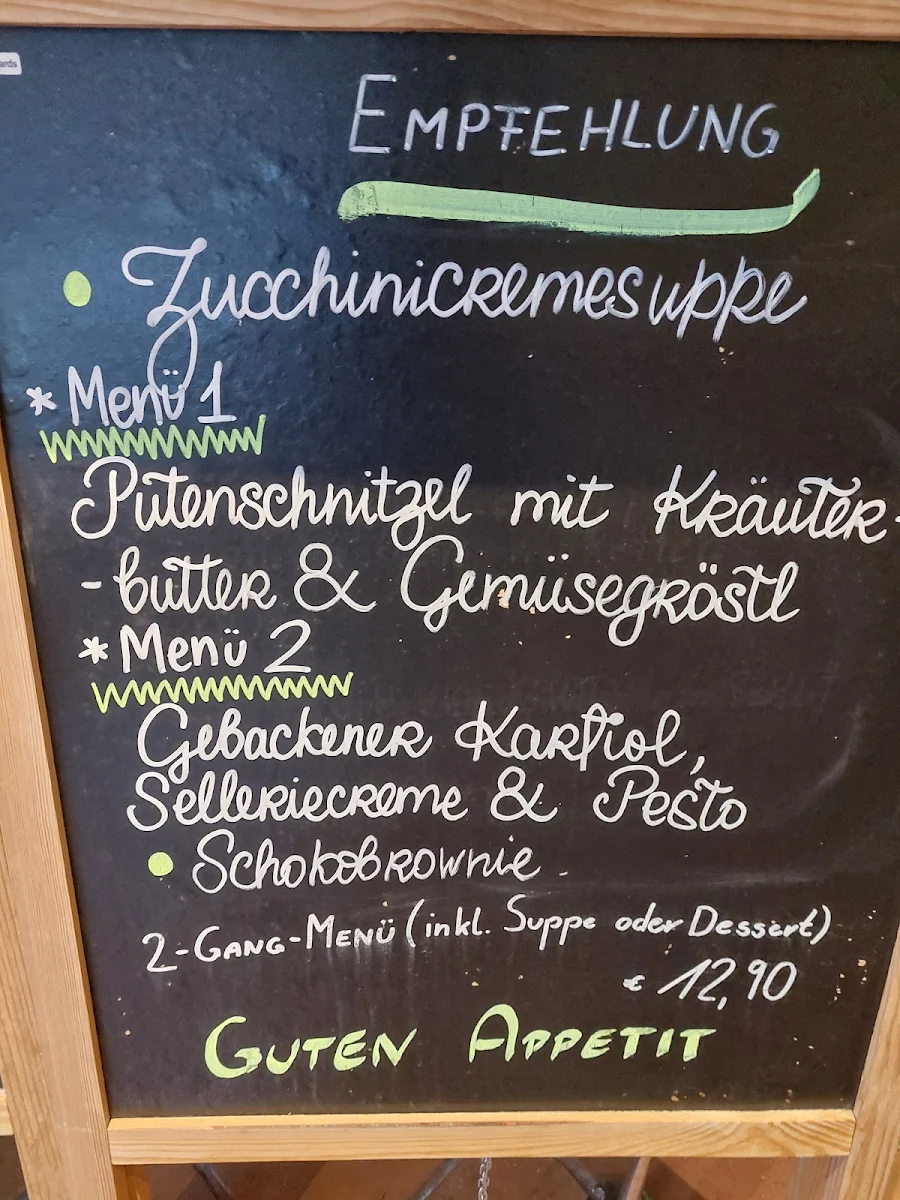 EMPFEHLUNG
• Zucchinicremesuppe
* Menü 1
Putenschnitzel mit Kräuter-
-butter & Gemüsegröstl
* Menü 2
Gebackener Karfiol,
Selleriecreme & Pesto
• Schokobrownie
2-GANG-MENÜ (inkl. Suppe oder Dessert)
€ 12,90
GUTEN APPETIT